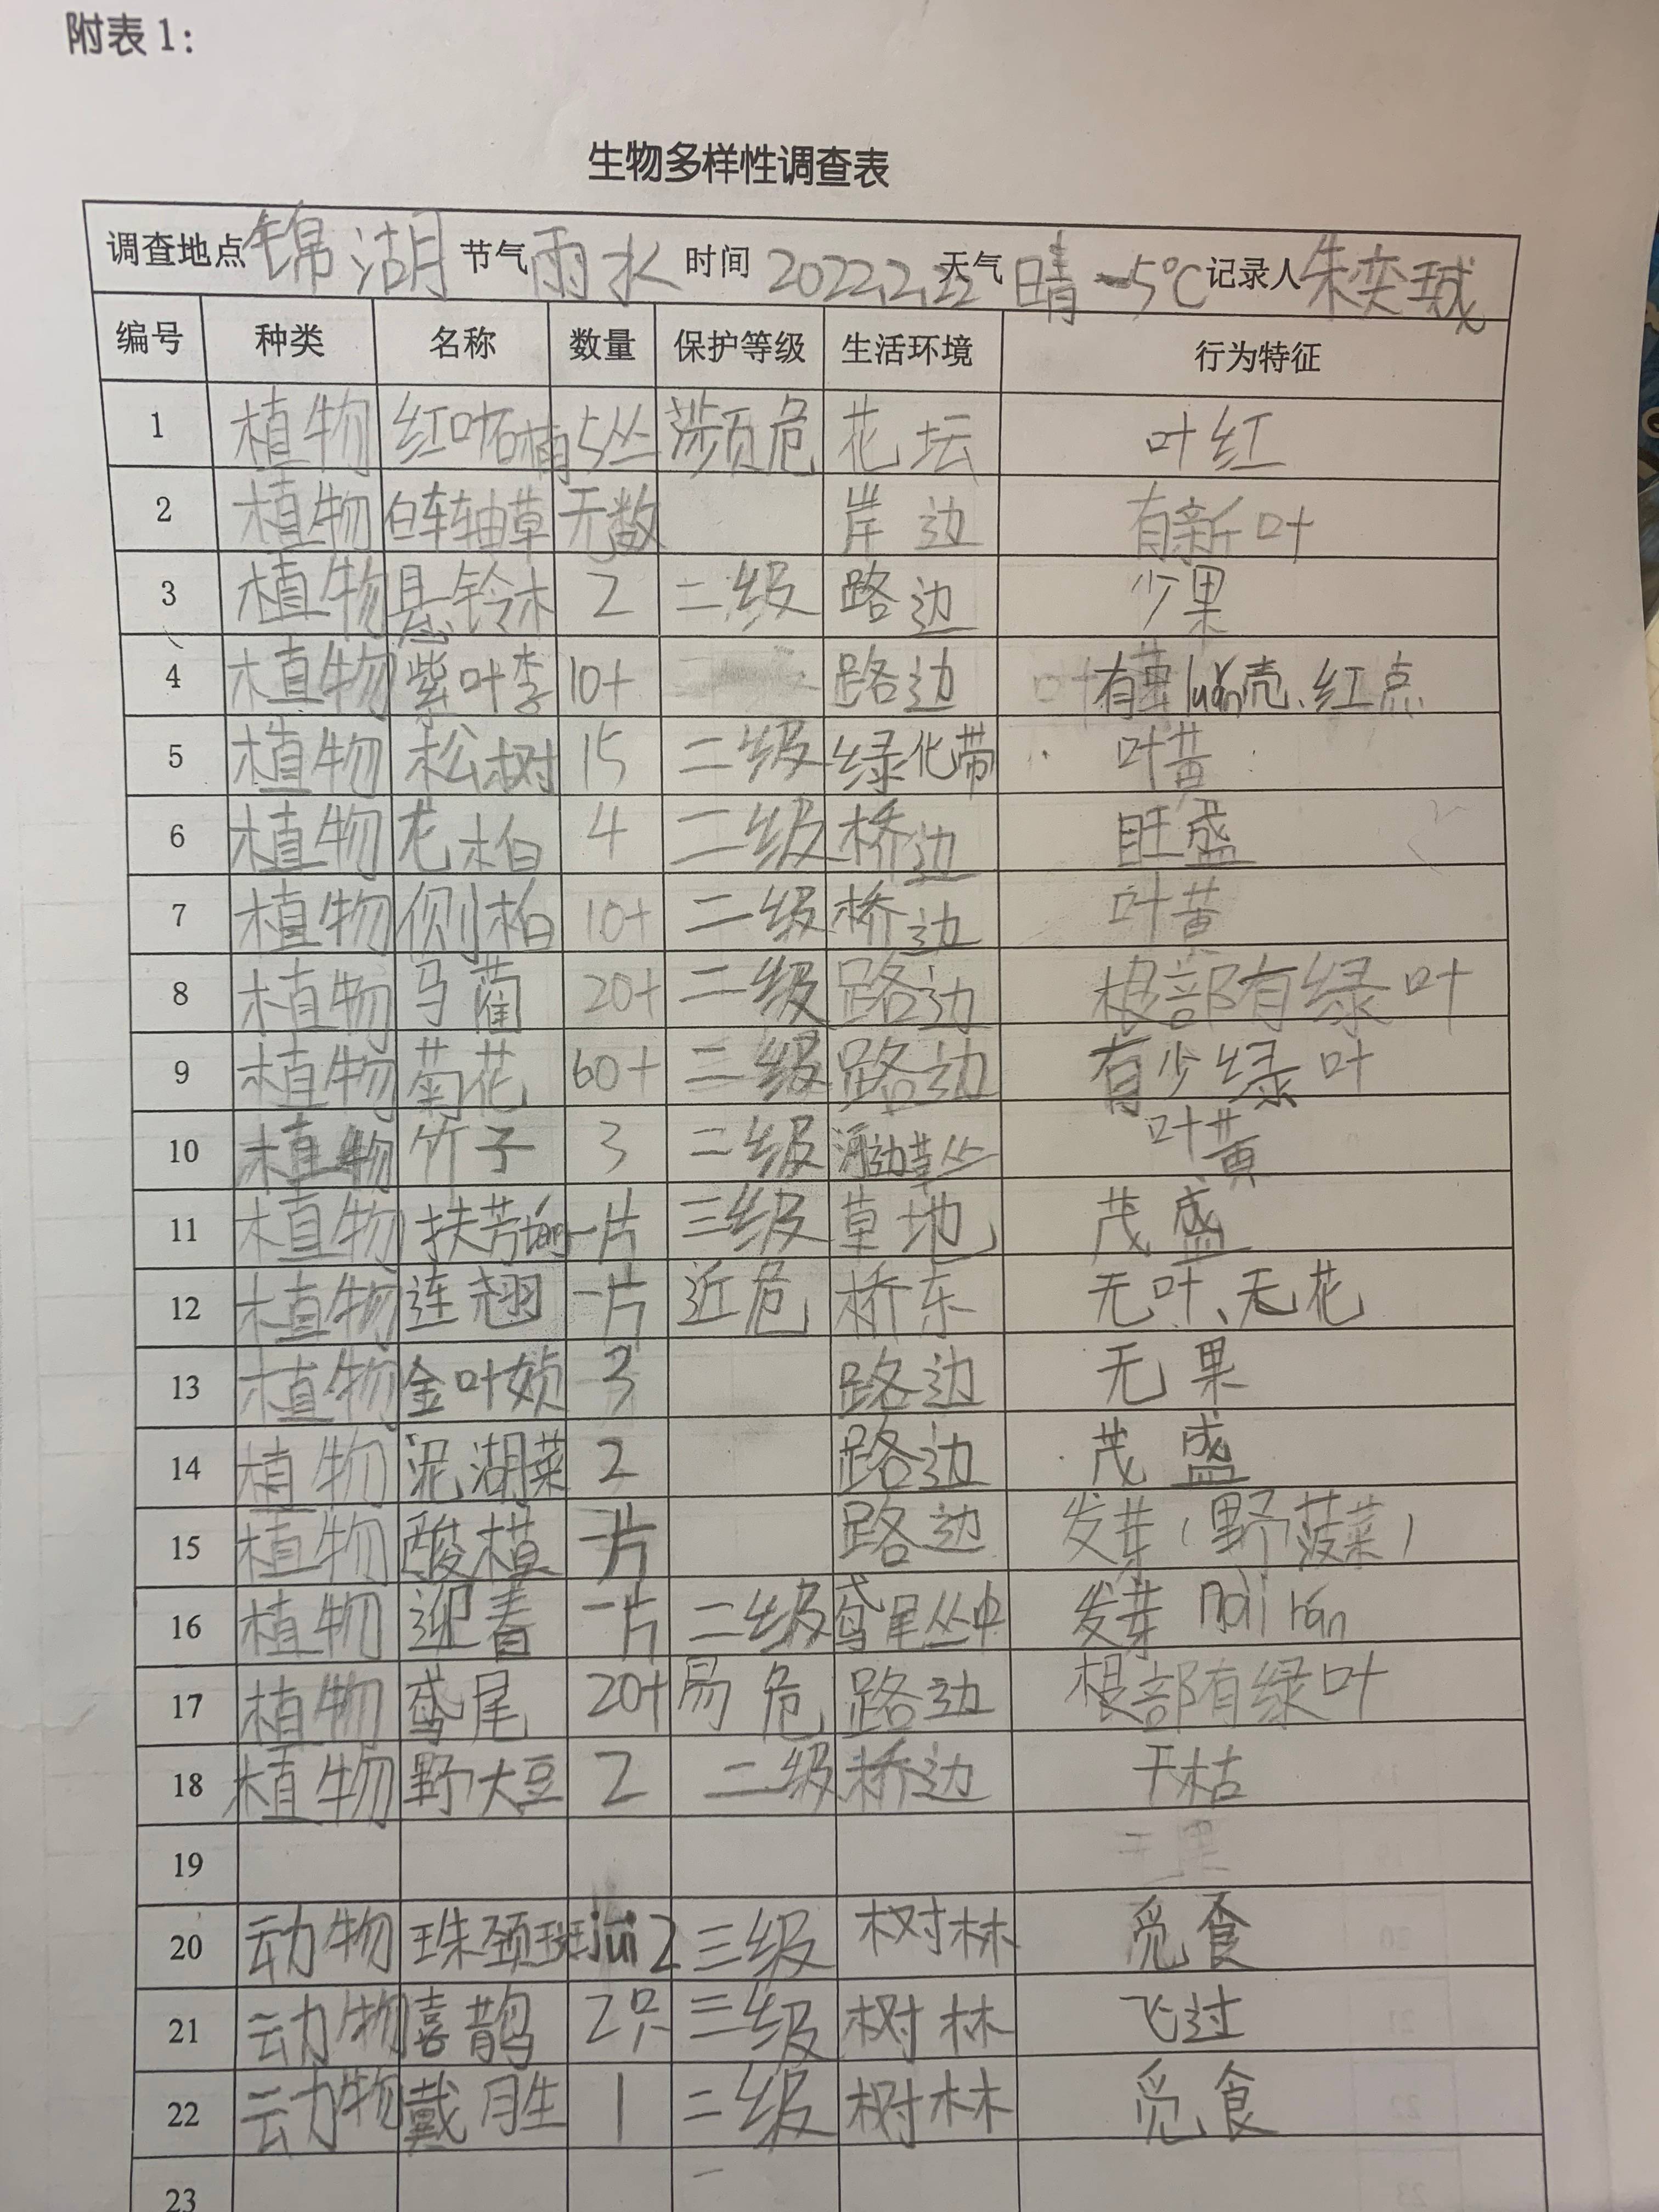 附表1：
生物多样性调查表
调查地点 锦湖 节气 雨水 时间 2022.2.22 天气 晴-5℃ 记录人 朱奕珹
编号 种类 名称 数量 保护等级 生活环境 行为特征
1 植物 红叶石楠 5丛 濒危 花坛 叶红
2 植物 白车轴草 无数 岸边 有新叶
3 植物 悬铃木 2 二级 路边 少果
4 植物 紫叶李 10+ 路边 有 luǎn壳、红点
5 植物 松树 15 二级 绿化带 叶黄
6 植物 龙柏 4 二级 桥边 旺盛
7 植物 侧柏 10+ 二级 桥边 叶黄
8 植物 马蔺 20+ 二级 路边 根部有绿叶
9 植物 菊花 60+ 二级 路边 有少绿叶
10 植物 竹子 3 二级 河边草丛 叶黄
11 植物 扶芳 一片 三级 草地 茂盛
12 植物 连翘 一片 近危 桥东 无叶、无花
13 植物 金叶女贞 3 路边 无果
14 植物 泥湖菜 2 路边 茂盛
15 植物 酸模 一片 路边 发芽（野菠菜）
16 植物 迎春 一片 二级 鸢尾丛中 发芽
17 植物 鸢尾 20+ 易危 路边 根部有绿叶
18 植物 野大豆 2 二级 桥边 干枯
19
20 动物 珠颈斑jui 2 三级 树林 觅食
21 动物 喜鹊 2只 三级 树林 飞过
22 动物 戴胜 1 二级 树林 觅食
23